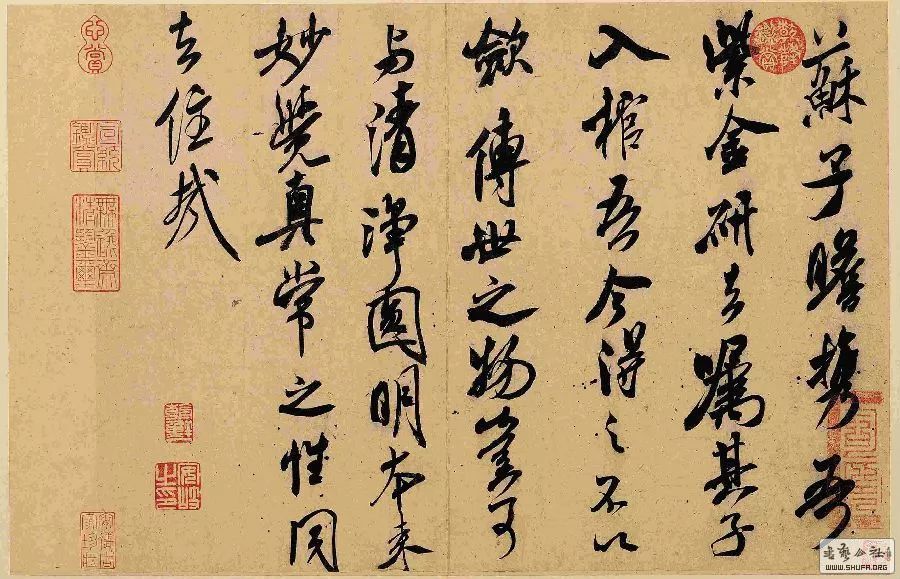 蘇子瞻攜吾
紫金研去囑其子
入棺吾今得之不以
斂傳世之物豈可
与清淨圓明本來
妙覺真常之性同
去住哉
書藝公社
WWW.SHUFA.ORG